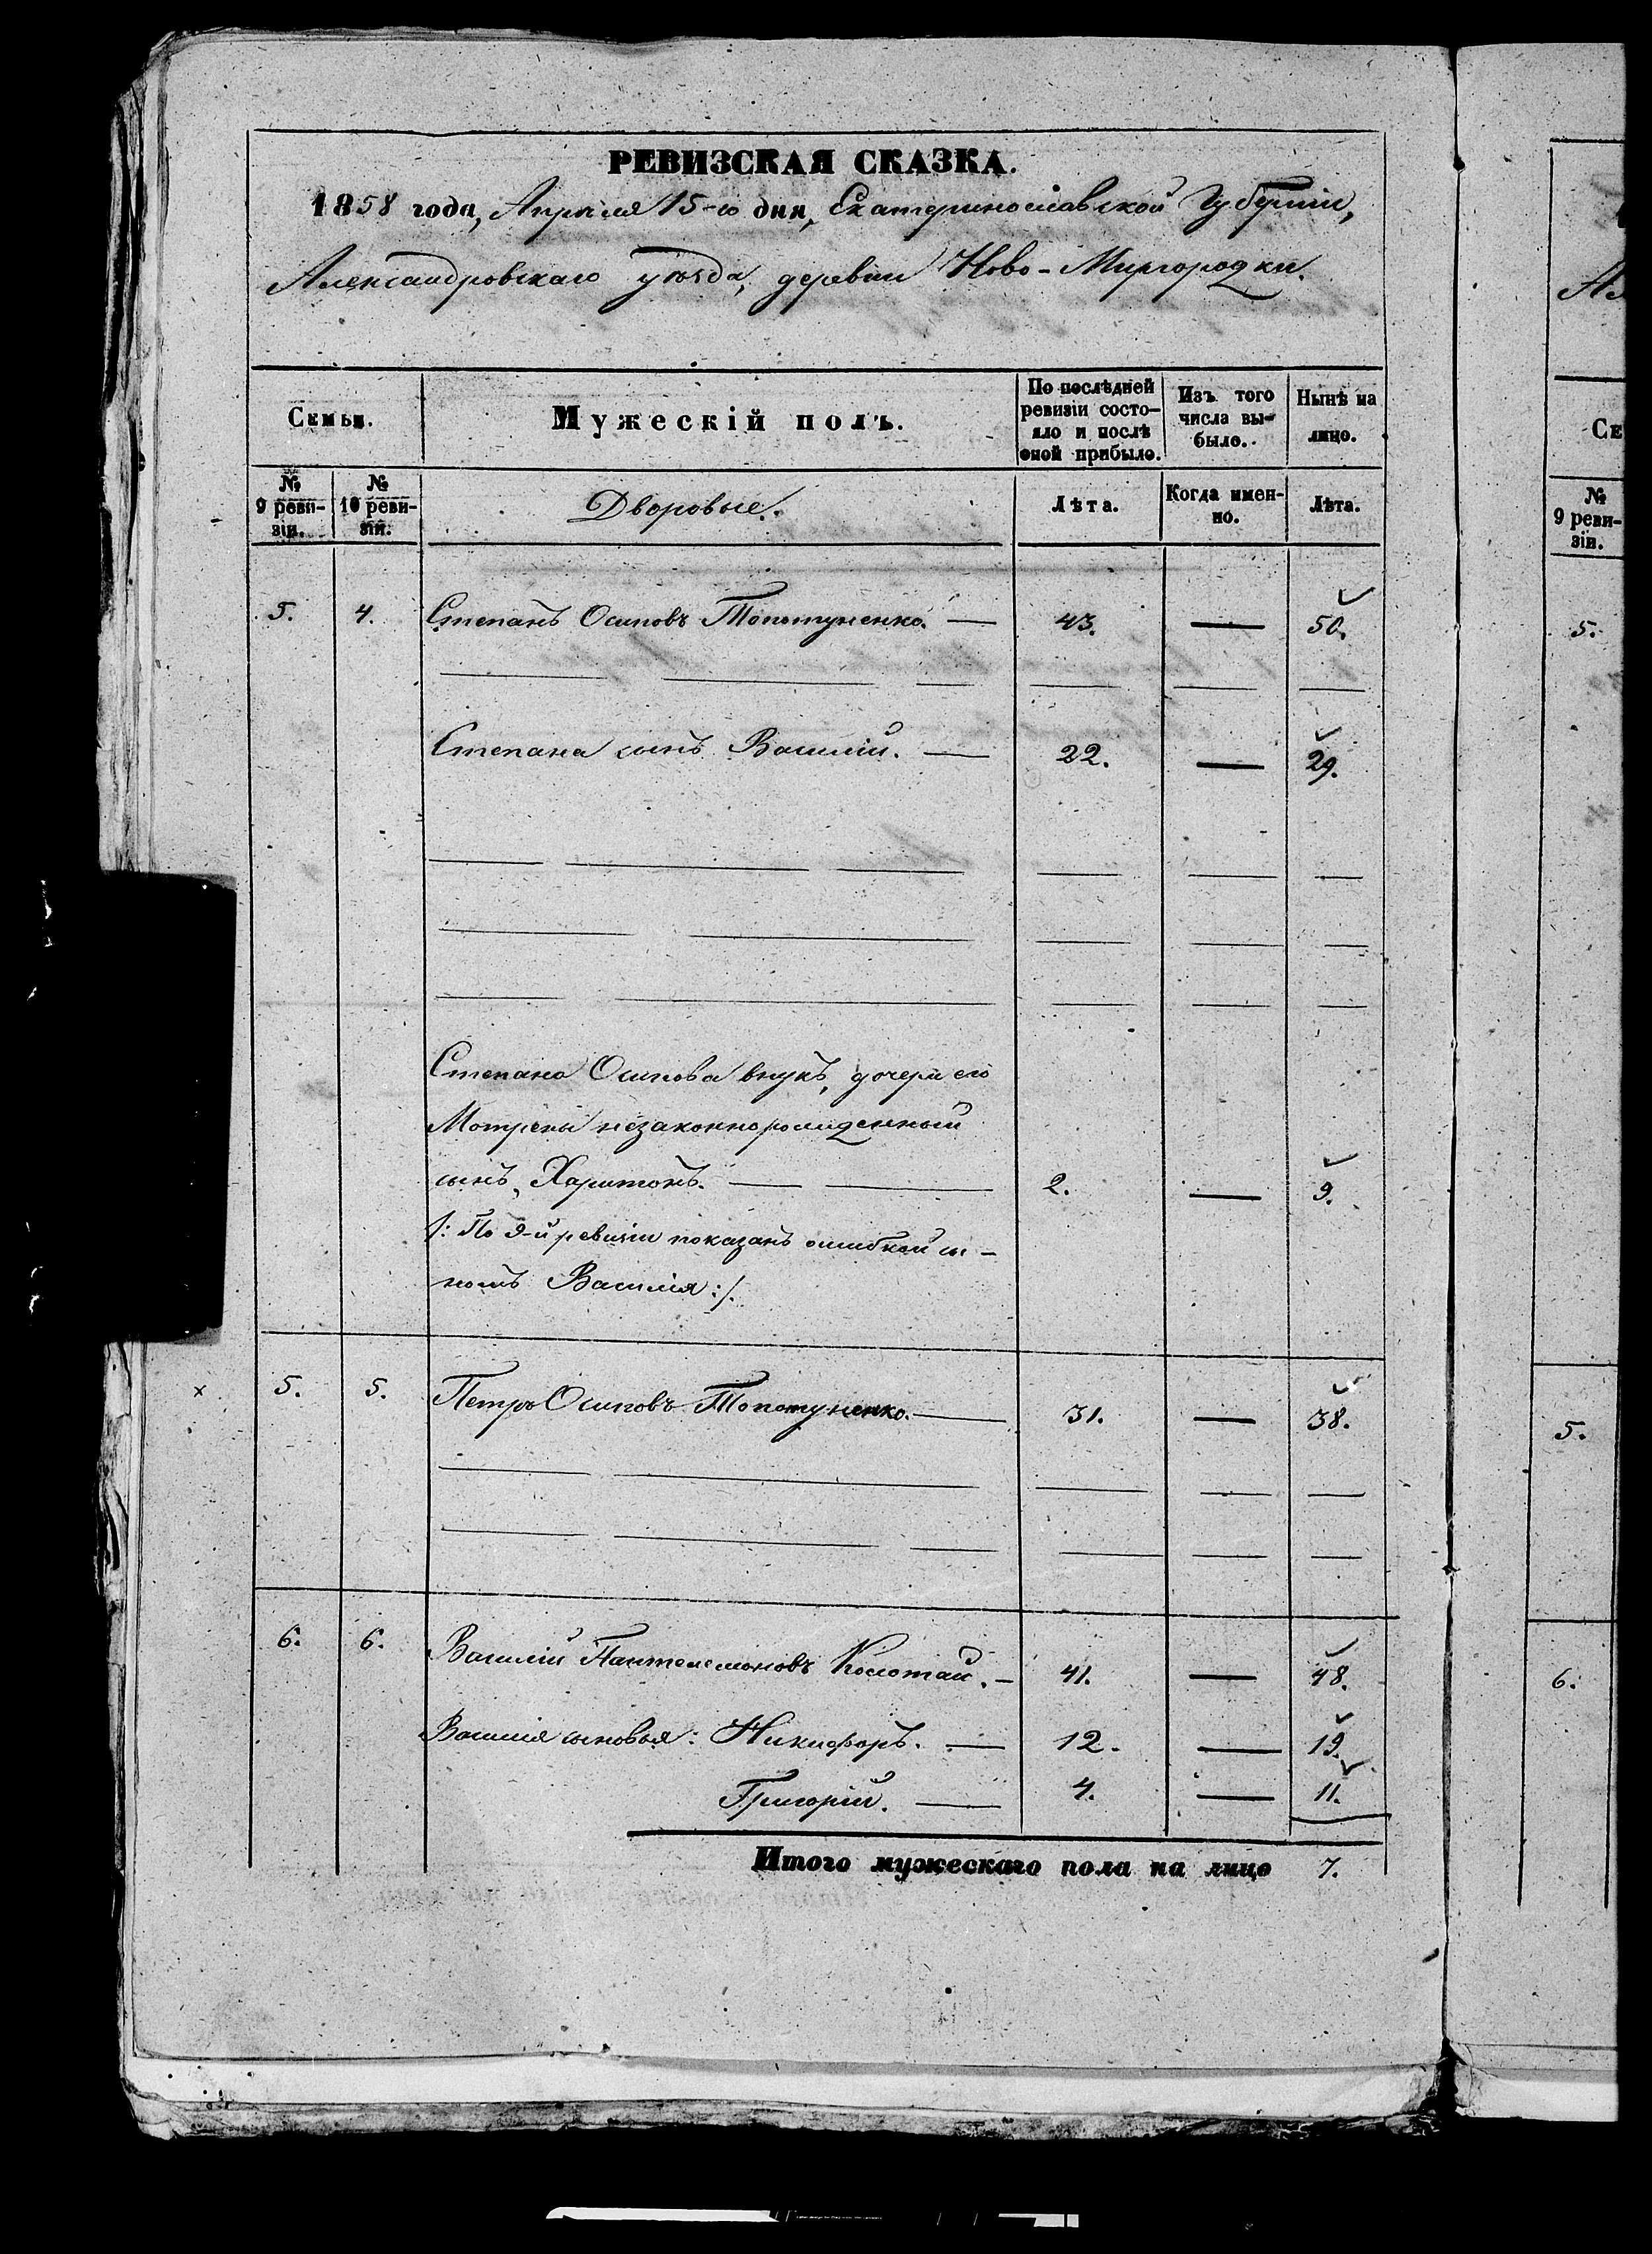 РЕВИЗСКАЯ СКАЗКА.
1858 года, Апрѣля 15-го дня, Екатеринославской Губерніи,
Александровскаго уѣзда, деревни Ново-Миргородки.
Семьи.
Мужескій полъ.
По послѣдней ревизіи состо-
яло и послѣ оной прибыло.
Изъ того числа вы-
было.
Нынѣ на лицо.
№ 9 реви-
зіи.
№ 10 реви-
зіи.
Дворовые.
Лѣта.
Когда имен-
но.
Лѣта.
5. 4. Степанъ Осиповъ Топотуненко. — 43. — 50.
Степана сынъ Василій. — 22. — 29.
Степана Осипова внукъ, дочери его
Мотрены незаконнорожденный
сынъ, Харитонъ. — 2. — 9.
/: По 9-й ревизіи показанъ ошибкой сы-
номъ Василія :/.
х 5. 5. Петръ Осиповъ Топотуненко. — 31. — 38.
6. 6. Василій Пантелемоновъ Колотай. — 41. — 48.
Василія сыновья: Никифоръ. — 12. — 19.
Григорій. — 4. — 11.
Итого мужескаго пола на лицо 7.
Се
№ 9 реви-
зіи.
5.
5.
6.